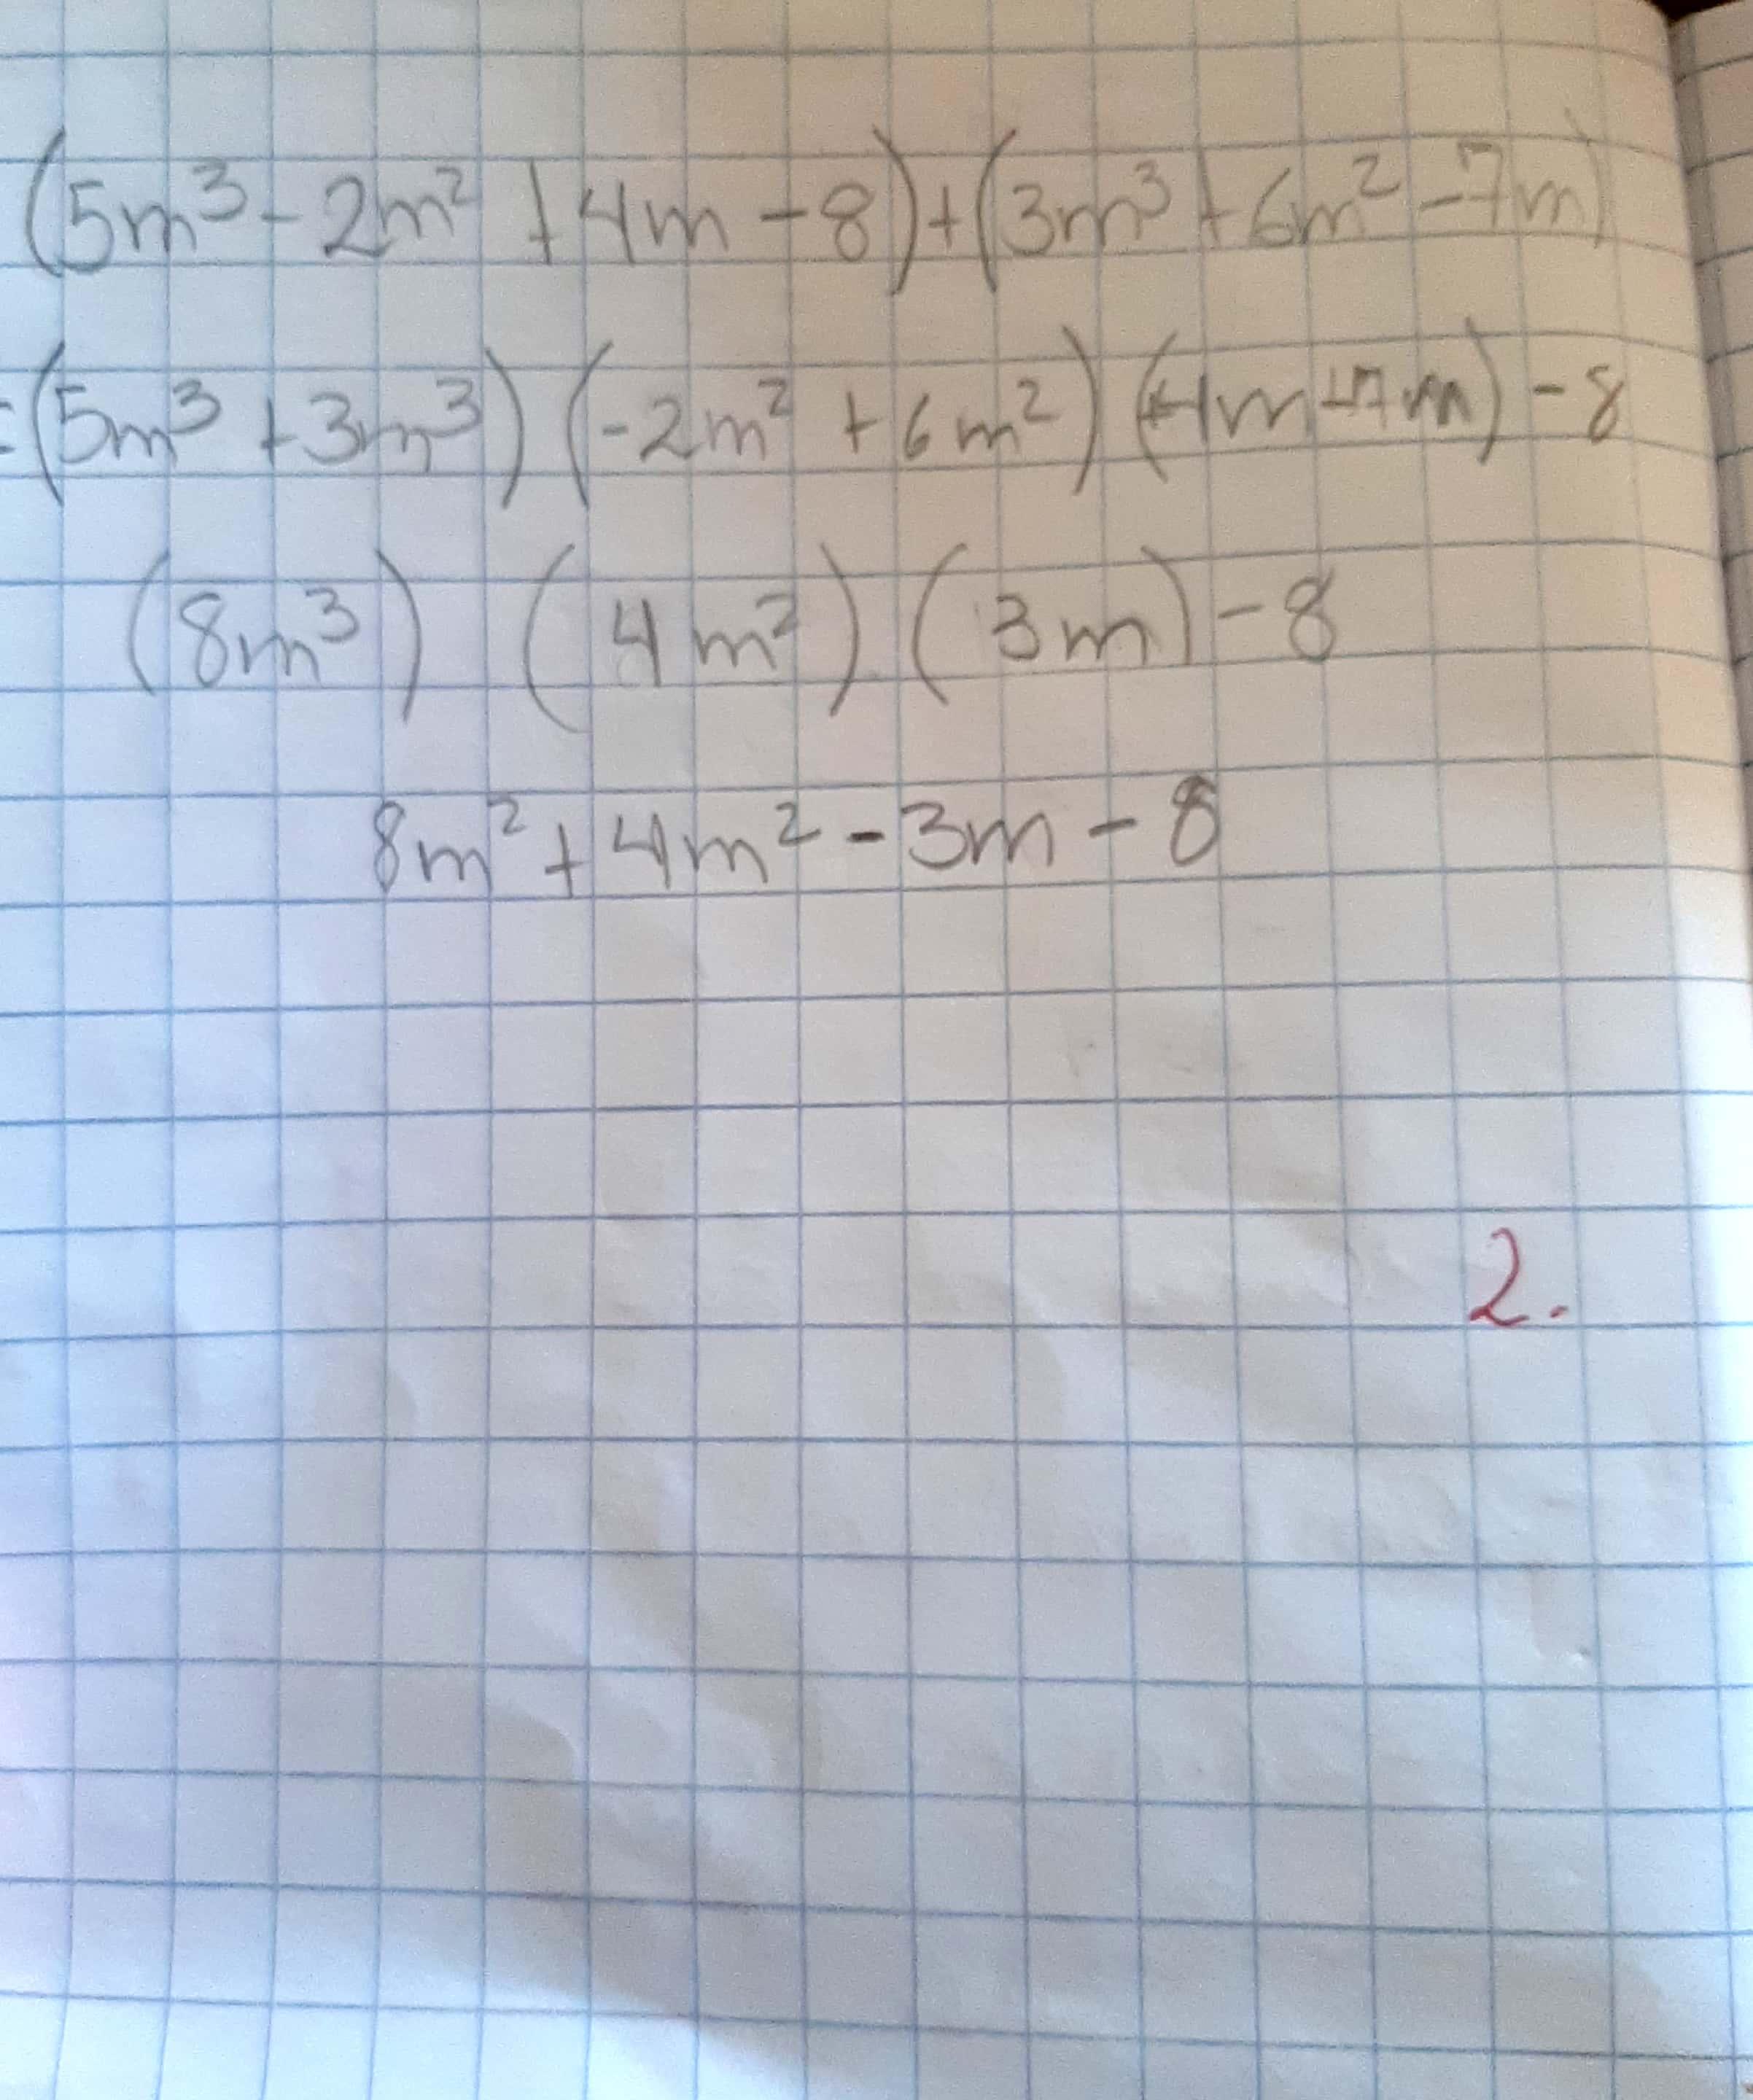 (5m³-2m²+4m-8)+(3m³+6m²-7m)
=(5m³+3m³)(-2m²+6m²)(+4m-7m)-8
(8m³) (4m²) (3m)-8
8m²+4m²-3m-8
2.